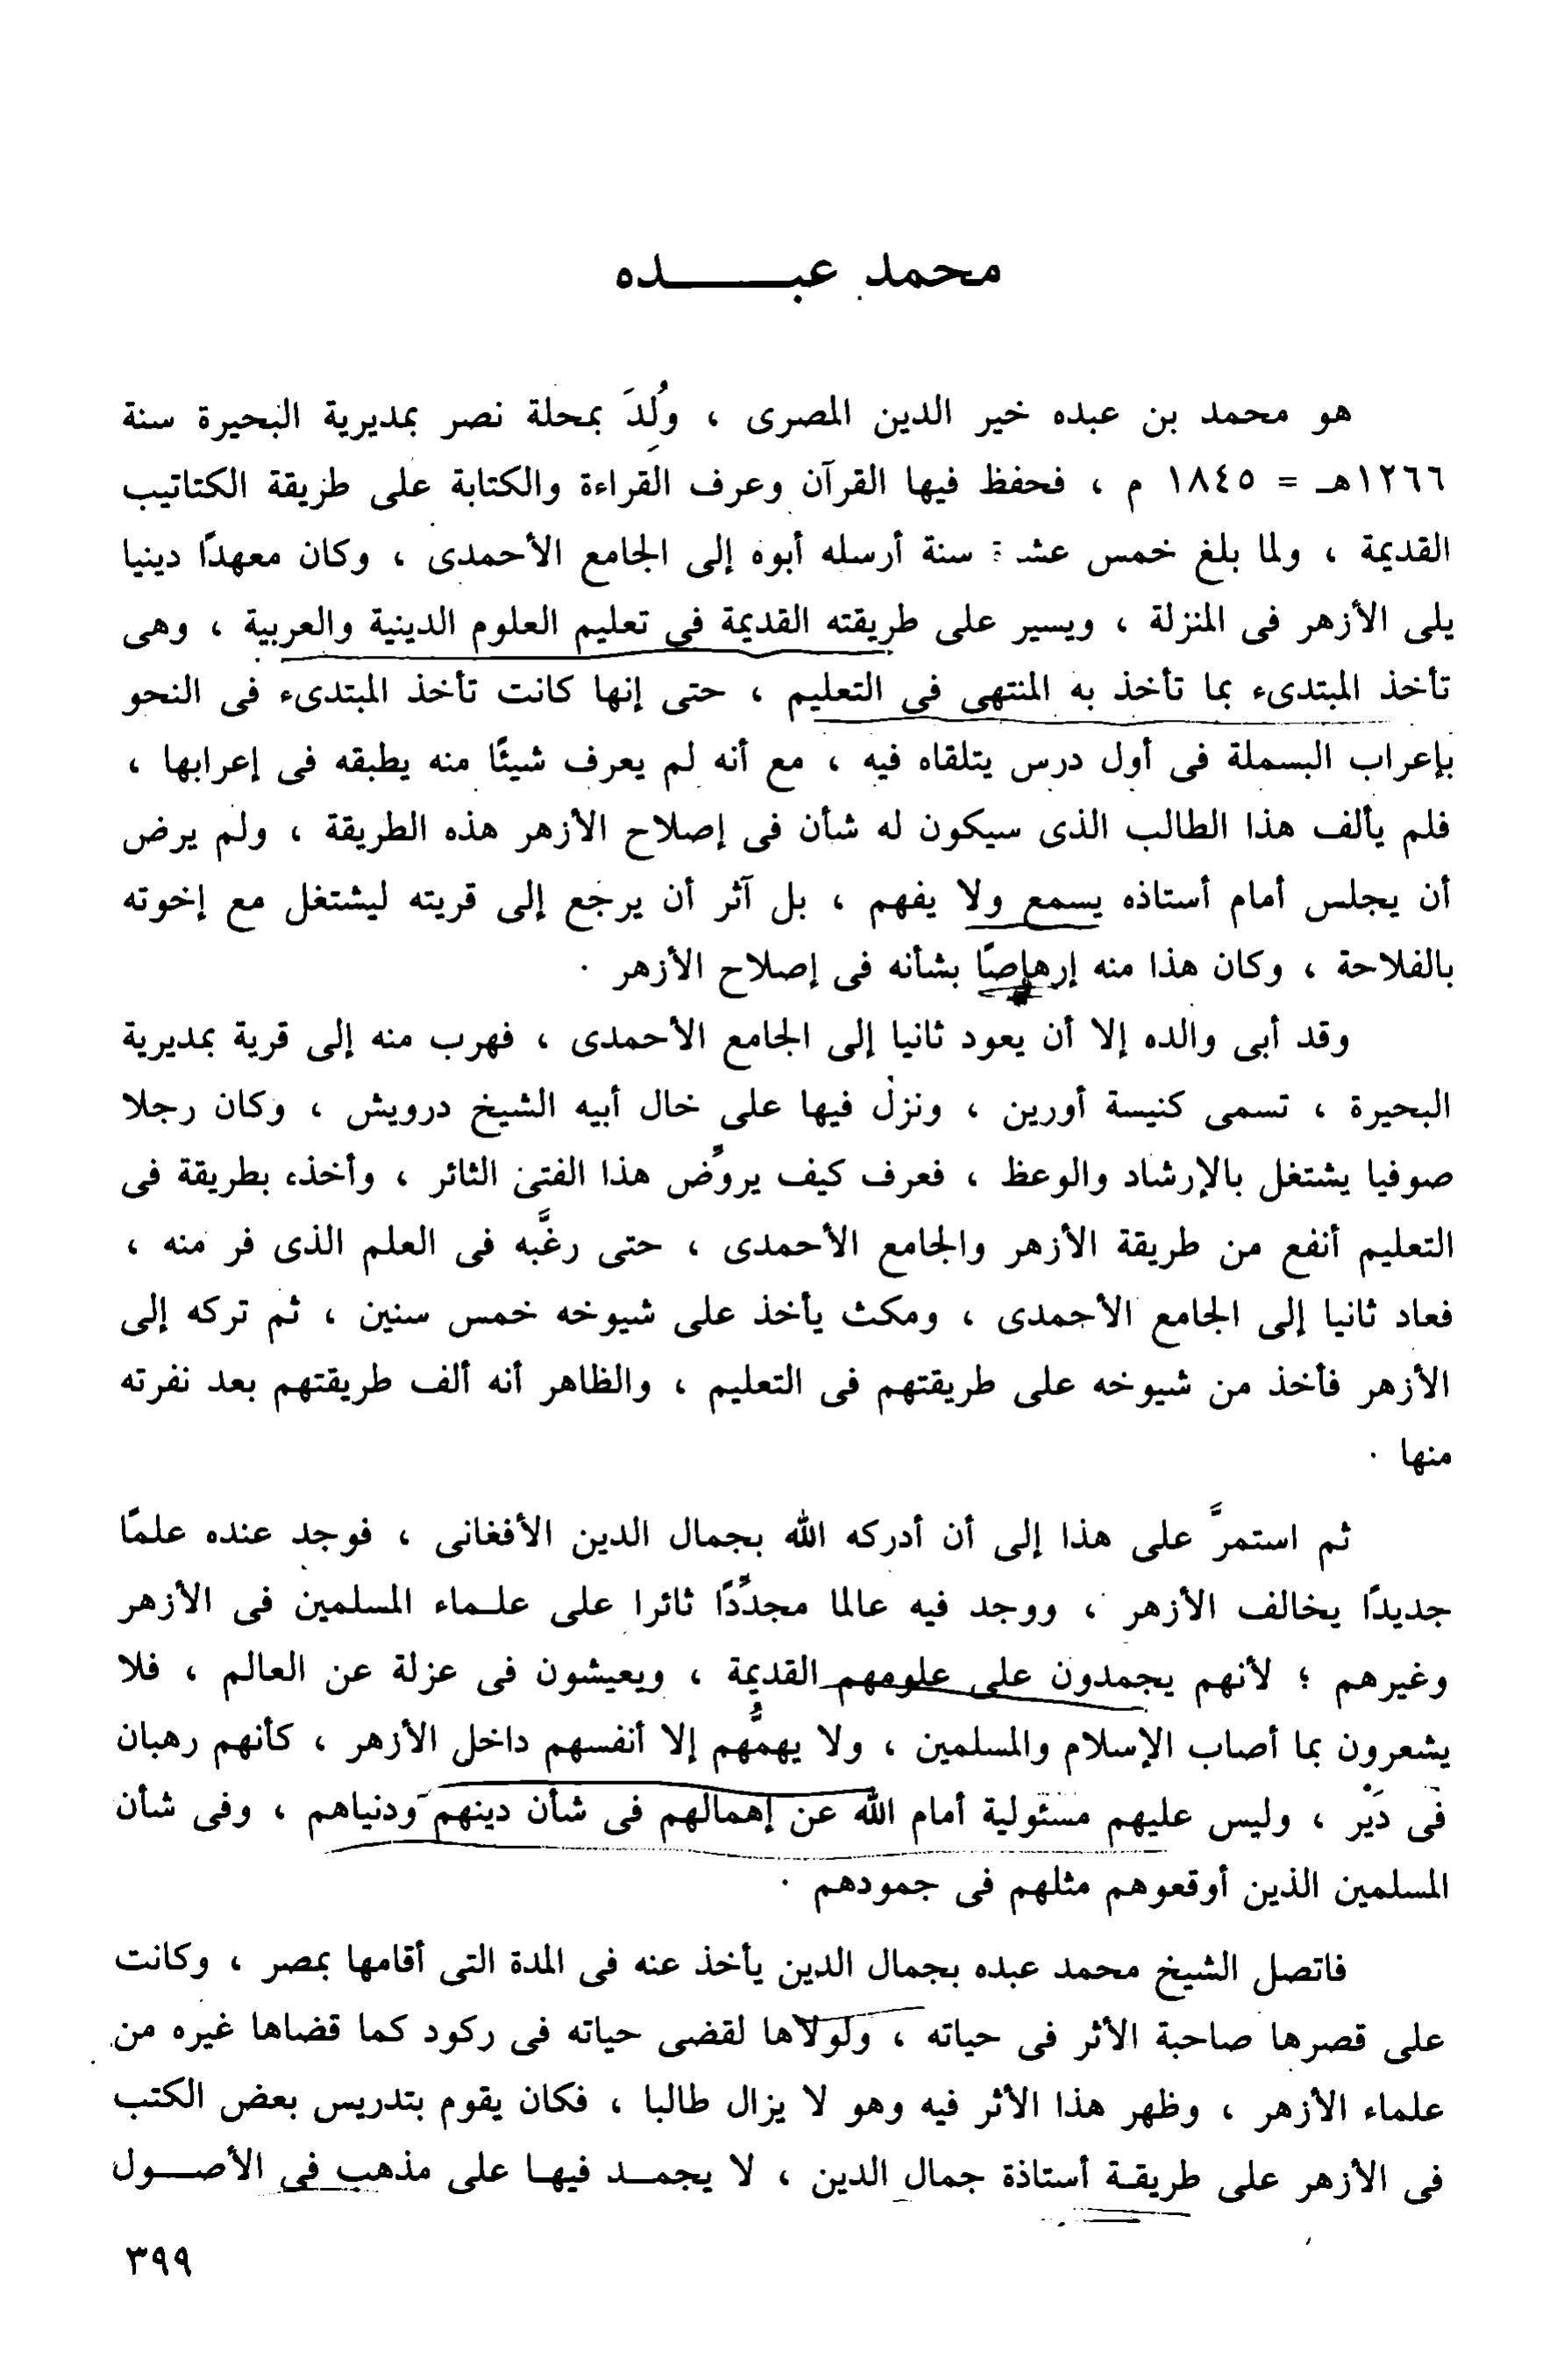 محمد عبـــــده
هو محمد بن عبده خير الدين المصرى ، وُلِدَ بمحلة نصر بمديرية البحيرة سنة
١٢٦٦هـ = ١٨٤٥ م ، فحفظ فيها القرآن وعرف القراءة والكتابة على طريقة الكتاتيب
القديمة ، ولما بلغ خمس عشرة سنة أرسله أبوه إلى الجامع الأحمدى ، وكان معهدًا دينيا
يلى الأزهر فى المنزلة ، ويسير على طريقته القديمة فى تعليم العلوم الدينية والعربية ، وهى
تأخذ المبتدىء بما تأخذ به المنتهى فى التعليم ، حتى إنها كانت تأخذ المبتدىء فى النحو
بإعراب البسملة فى أول درس يتلقاه فيه ، مع أنه لم يعرف شيئًا منه يطبقه فى إعرابها ،
فلم يألف هذا الطالب الذى سيكون له شأن فى إصلاح الأزهر هذه الطريقة ، ولم يرض
أن يجلس أمام أستاذه يسمع ولا يفهم ، بل آثر أن يرجع إلى قريته ليشتغل مع إخوته
بالفلاحة ، وكان هذا منه إرهاصًا بشأنه فى إصلاح الأزهر .
وقد أبى والده إلا أن يعود ثانيا إلى الجامع الأحمدى ، فهرب منه إلى قرية بمديرية
البحيرة ، تسمى كنيسة أورين ، ونزل فيها على خال أبيه الشيخ درويش ، وكان رجلا
صوفيا يشتغل بالإرشاد والوعظ ، فعرف كيف يروِّض هذا الفتى الثائر ، وأخذه بطريقة فى
التعليم أنفع من طريقة الأزهر والجامع الأحمدى ، حتى رغَّبه فى العلم الذى فر منه ،
فعاد ثانيا إلى الجامع الأحمدى ، ومكث يأخذ على شيوخه خمس سنين ، ثم تركه إلى
الأزهر فأخذ من شيوخه على طريقتهم فى التعليم ، والظاهر أنه ألف طريقتهم بعد نفرته
منها .
ثم استمرَّ على هذا إلى أن أدركه الله بجمال الدين الأفغانى ، فوجد عنده علمًا
جديدًا يخالف الأزهر ، ووجد فيه عالما مجدِّدًا ثائرا على علـماء المسلمين فى الأزهر
وغيرهم ؛ لأنهم يجمدون على علومهم القديمة ، ويعيشون فى عزلة عن العالم ، فلا
يشعرون بما أصاب الإسلام والمسلمين ، ولا يهمُّهم إلا أنفسهم داخل الأزهر ، كأنهم رهبان
فى دَيْر ، وليس عليهم مسئولية أمام الله عن إهمالهم فى شأن دينهم ودنياهم ، وفى شأن
المسلمين الذين أوقعوهم مثلهم فى جمودهم .
فاتصل الشيخ محمد عبده بجمال الدين يأخذ عنه فى المدة التى أقامها بمصر ، وكانت
على قصرها صاحبة الأثر فى حياته ، ولولاها لقضى حياته فى ركود كما قضاها غيره من
علماء الأزهر ، وظهر هذا الأثر فيه وهو لا يزال طالبا ، فكان يقوم بتدريس بعض الكتب
فى الأزهر على طريقـة أستاذة جمال الدين ، لا يجمــد فيهـا على مذهب فى الأصــول
٣٩٩